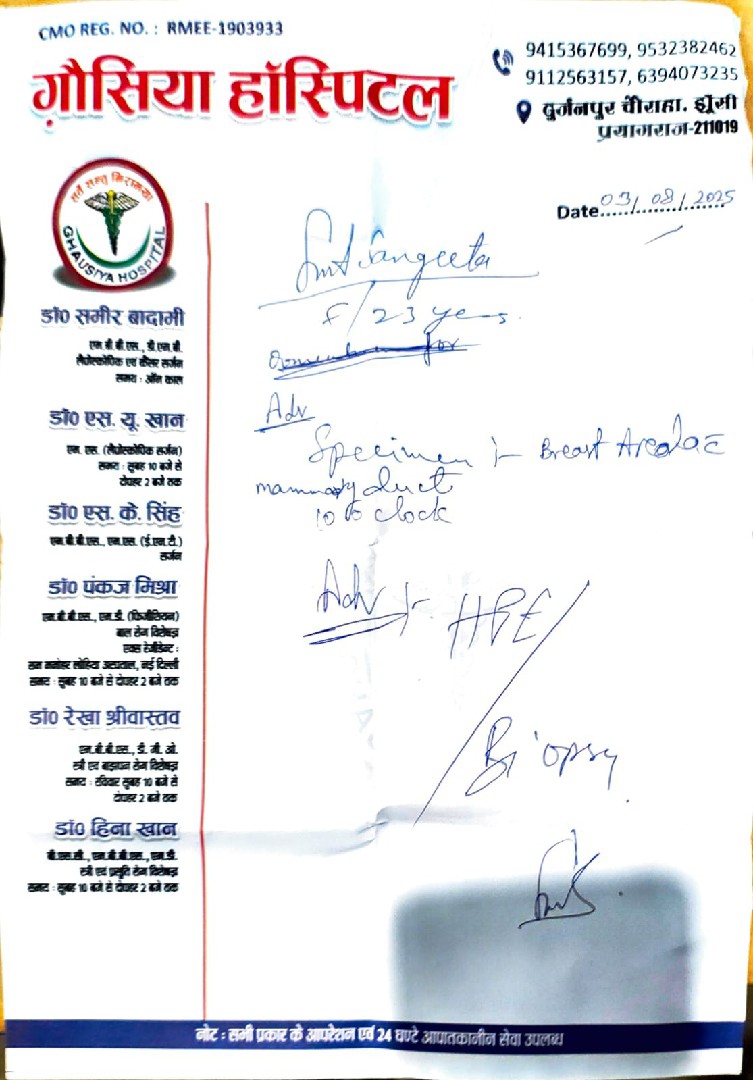 CMO REG. NO. : RMEE-1903933
9415367699, 9532382462
9112563157, 6394073235
ग़ौसिया हॉस्पिटल
दुर्जनपुर चौराहा. झूँसी
प्रयागराज-211019
सर्वे सन्तु निरामया
GHAUSIYA HOSPITAL
Date 03/08/2025
Smt Sangeeta
F/23 years.
Adv
Specimen :- Breast Areolae
mammary duct
10 o clock
Adv :- HPE/
Biopsy
डॉ० समीर बादामी
एम.बी.बी.एस., डी.एन.बी.
लैप्रोस्कोपिक एवं कैंसर सर्जन
समय : ऑन काल
डॉ० एस. यू. खान
एम. एस. (लैप्रोस्कोपिक सर्जन)
समय : सुबह 10 बजे से
दोपहर 2 बजे तक
डॉ० एस. के. सिंह
एम.बी.बी.एस., एम.एस. (ई.एन.टी.)
सर्जन
डॉ० पंकज मिश्रा
एम.बी.बी.एस., एम.डी. (फिजीशियन)
बाल रोग विशेषज्ञ
एक्स रेजीडेन्ट :
राम मनोहर लोहिया अस्पताल, नई दिल्ली
समय : सुबह 10 बजे से दोपहर 2 बजे तक
डॉ० रेखा श्रीवास्तव
एम.बी.बी.एस., डी. जी. ओ.
स्त्री एवं बाझपन रोग विशेषज्ञ
समय : रविवार सुबह 10 बजे से
दोपहर 2 बजे तक
डॉ० हिना खान
बी.एस.सी., एम.बी.बी.एस., एम.डी.
स्त्री एवं प्रसूति रोग विशेषज्ञ
समय : सुबह 10 बजे से दोपहर 2 बजे तक
नोट : सभी प्रकार के आपरेशन एवं 24 घण्टे आपातकालीन सेवा उपलब्ध